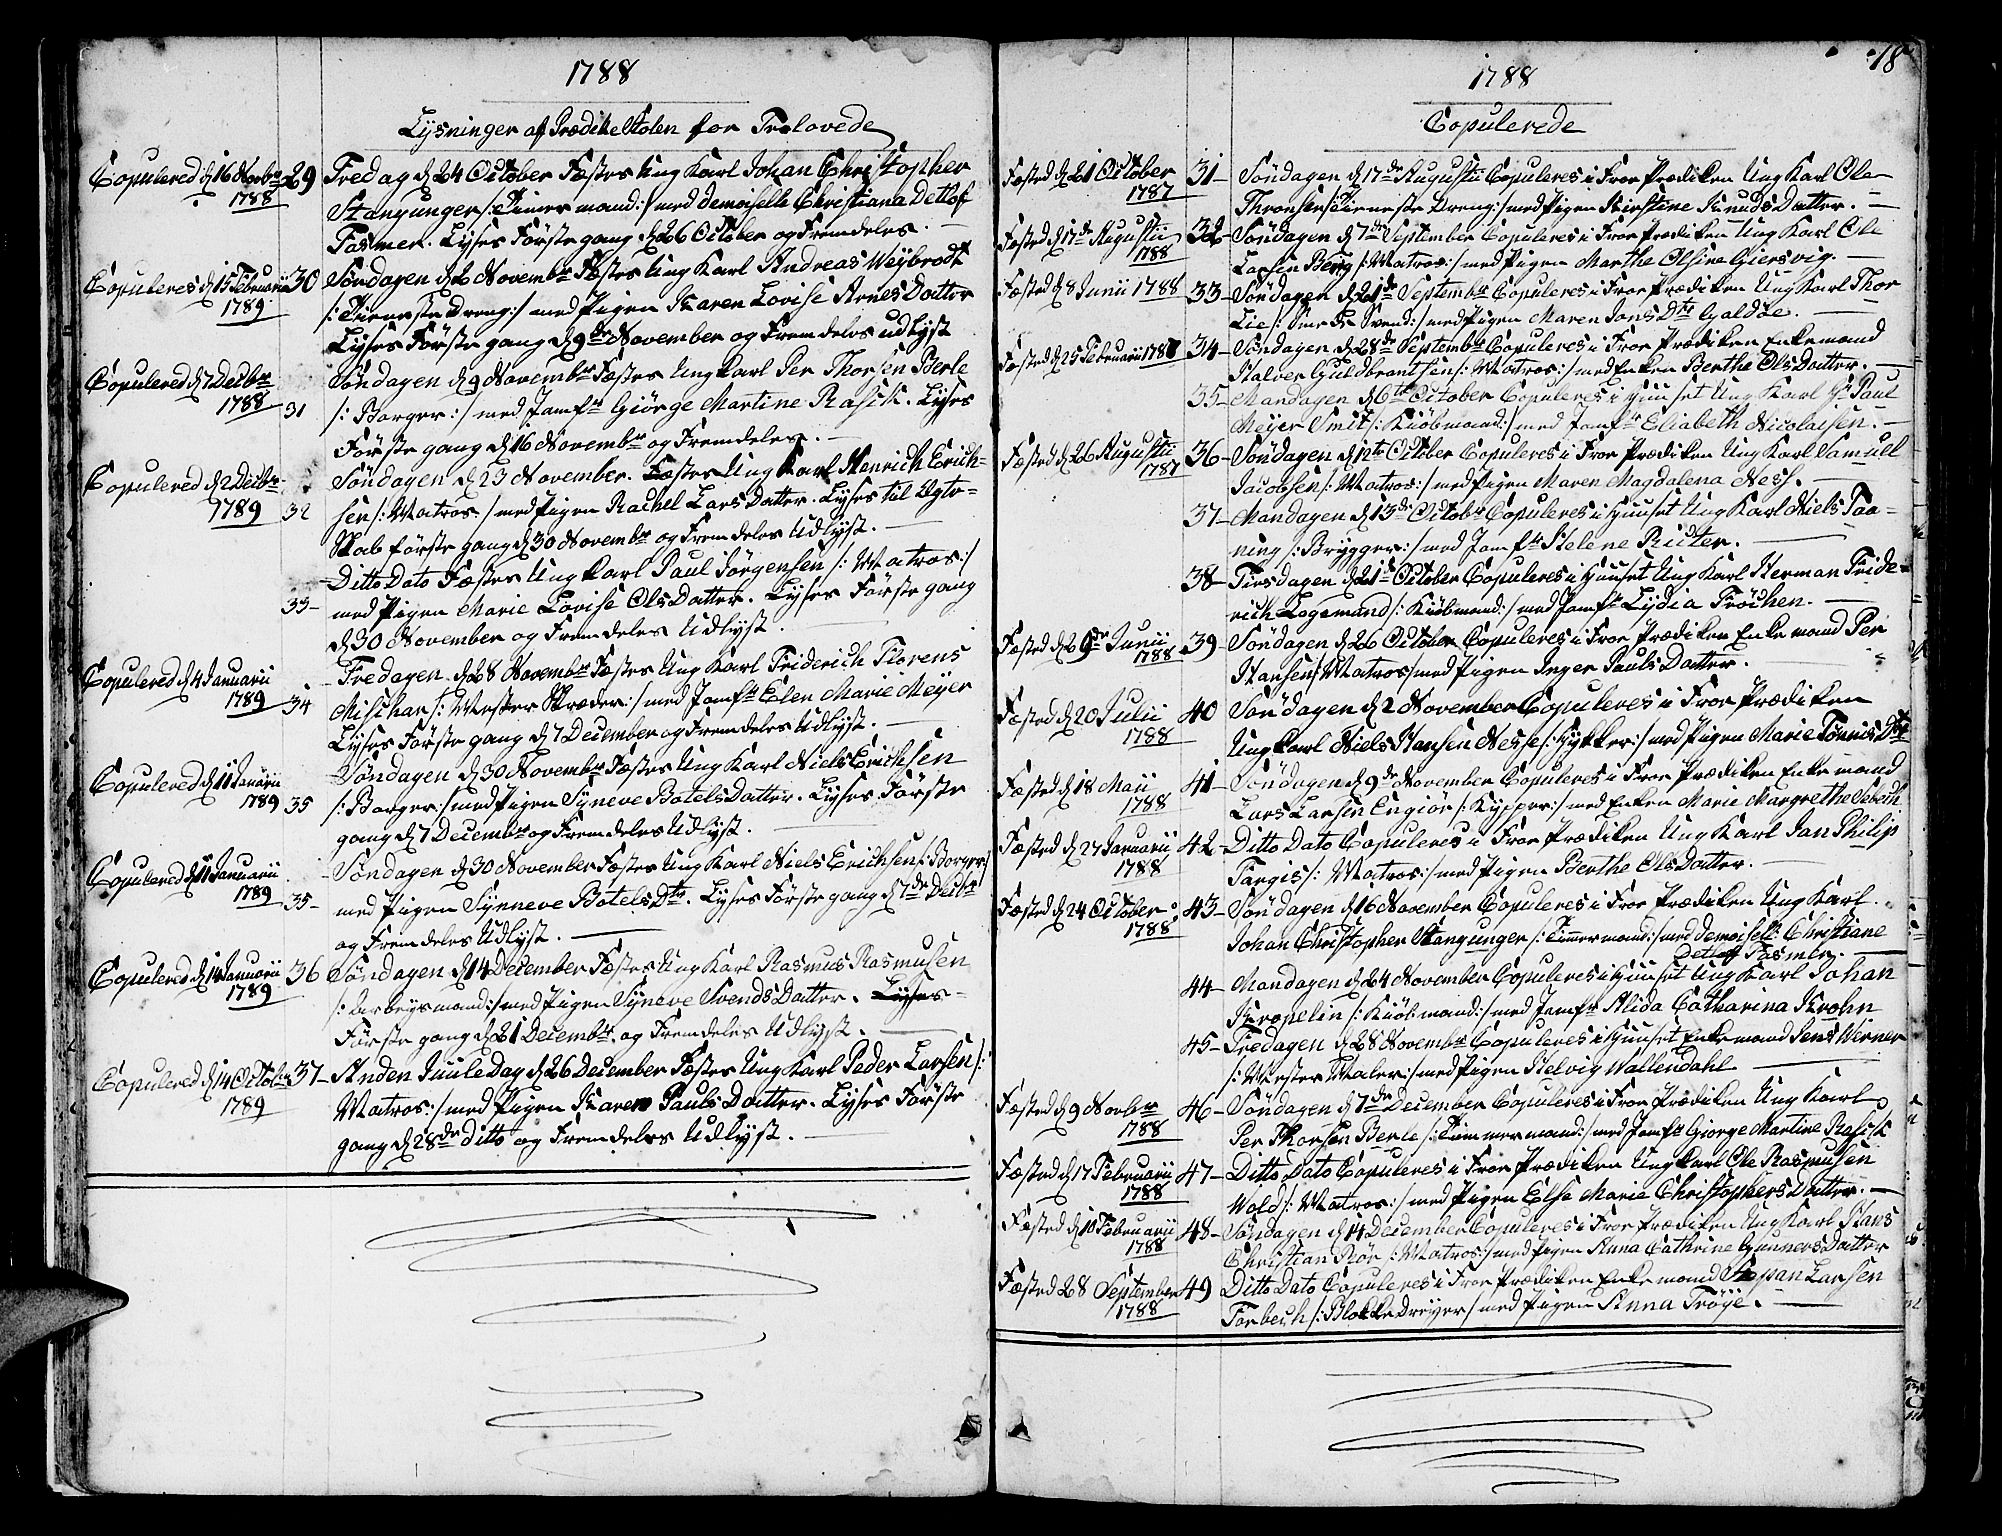 1788
Lysninger af Prædikestolen for Trolovede
Copulered d 16 Novbr 1788
29 Fredag d 24 October Fæstes Ung Karl Johan Christopher
Stangunger /: Timermand :/ med demoiselle Christiana Detlof
Fasmer. Lyses Förste gang d 26 October og Fremdeles. —
Copuleres d 15 Februarii 1789
30 Söndagen d 2 Novembr Fæstes Ung Karl Andreas Weybrodt
/: Tieneste Dreng :/ med Pigen Karen Lovise Arnes Datter
Lyses Förste gang d 9de November og Fremdeles udlyst
Copulered d 7 Decbr 1788
31 Söndagen d 9 Novembr Fæstes Ung Karl Per Thorsen Berle
/: Borger :/ med Jomfr Giörge Martine Rasch. Lyses
Förste gang d 16 Novembr og Fremdeles. —
Copulered d 2 Decbr 1789
32 Söndagen d 23 November. Fæstes Ung Karl Henrich Erich-
sen /: Matros :/ med Pigen Rachel Lars Datter. Lyses til Ægte-
skab förste gang d 30 Novembr og Fremdeles Udlyst. —
33 — Ditto Dato Fæstes Ung Karl Paul Jörgensen /: Matros :/
med Pigen Marie Lovise Ols Datter. Lyses Förste gang
d 30 November og Fremdeles Udlyst.
Copulered d 4 Januarii 1789
34 Fredagen d 28 Novembr Fæstes Ung Karl Friderich Florens
Mischan /: Mester Skræder :/ med Jomfr Elen Marie Meyer
Lyses Förste gang d 7 December og Fremdeles Udlyst. —
Copulered d 11 Januarii 1789
35 Söndagen d 30 Novembr Fæstes Ung Karl Niels Erichsen
/: Borger :/ med Pigen Syneve Botels Datter. Lyses Förste
gang d 7 Decembr og Fremdeles Udlyst. —
Copulered d 11 Januarii 1789
35 — Söndagen d 30 November Fæstes Ung Karl Niels Erichsen /: Borger :/
med Pigen Synneve Botels Dtr. Lyses Förste gang d 7de Decbr
og Fremdeles Udlyst. —
Copulered d 14 Januarii 1789
36 Söndagen d 14 December Fæstes Ung Karl Rasmus Rasmusen
/: Arbeysmand :/ med Pigen Syneve Svends Datter. Lyses
Förste gang d 21 Decembr. og Fremdeles Udlyst. —
Copulered d 14 October 1789
37 — Anden Juule Dag d 26 December Fæstes Ung Karl Peder Larsen /:
Matros :/ med Pigen Karen Pauls Datter. Lyses Förste
gang d 28de Ditto og Fremdeles Udlyst. —
18
1788
Copulerede
Fæsted d 21 October 1787
31 — Söndagen d 17de Augustii Copuleres i Froe Prædiken Ung Karl Ole
Thronsen /: Tieneste Dreng :/ med Pigen Kirstine Knuds Datter. —
Fæsted d 17de Augustii 1788
32 — Söndagen d 7de September Copuleres i Froe Prædiken Ung Karl Ole
Larsen Berg /: Matros :/ med Pigen Marthe Olsine Giersvig. —
Fæsted d 8 Junii 1788
33 — Söndagen d 21de Septembr Copuleres i Froe Prædiken Ung Karl Thor
Lie /: Smede Svend :/ med Pigen Maren Jons Dtr Galdze. —
Fæsted d 25 Februarii 1781
34 — Söndagen d 28de Septembr Copuleres i Froe Prædiken Enkemand
Halver Guldbrantsen /: Matros :/ med Enken Berthe Ols Datter. —
35 — Mandagen d 6te October Copuleres i Huuset Ung Karl Sr Paul
Meyer Smit /: Kiöbmand :/ med Jomfr Eliabeth Nicolaisen. —
Fæsted d 26 Augustii 1787
36 — Söndagen d 12te October Copuleres i Froe Prædiken Ung Karl Samuell
Jacobsen /: Matros :/ med Pigen Maren Magdalena Ness. —
37 — Mandagen d 13de Octobr Copuleres i Huuset Ung Karl Niels Faa-
ning /: Brygger :/ med Jomfr Helene Ruter. —
38 — Tirsdagen d 21de October Copuleres i Huuset Ung Karl Herman Fride-
rich Logemand /: Kiöbmand :/ med Jomfr Lydia Fröchen. —
Fæsted d 29de Junii 1788
39 — Söndagen d 26 October Copuleres i Froe Prædiken Enkemand Per
Hansen /: Matros :/ med Pigen Inger Pauls Datter. —
Fæsted d 20 Julii 1788
40 Söndagen d 2 November Copuleres i Froe Prædiken
Ung Karl Niels Hansen Nesse /: Hykker :/ med Pigen Marie Tönnis Dtr
Fæsted d 18 Maii 1788
41 — Söndagen d 9de November Copuleres i Froe Prædiken Enkemand
Lars Larsen Engior /: Kypper :/ med Enken Marie Margrethe Sebeth.
Fæsted d 27 Januarii 1788
42 — Ditto Dato Copuleres i Froe Prædiken Ung Karl Jan Philip
Fargis /: Matros :/ med Pigen Berthe Ols Datter. —
Fæsted d 24 October 1788
43 — Söndagen d 16 November Copuleres i Froe Prædiken Ung Karl
Johan Christopher Stangunger /: Timmermand :/ med demoisell: Christiane
Detloff Fasmer. —
44 — Mandagen d 24 November Copuleres i Huuset Ung Karl Johan
Kropelin /: Kiöbmand :/ med Jomfr Alida Catharina Krohn
45 — Fredagen d 28 Novembr Copuleres i Huuset Enkemand Jens Werner
/: Mester Maler :/ med Pigen Helvig Wallendahl —
Fæsted d 9 Novbr 1788
46 — Söndagen d 7de December Copuleres i Froe Prædiken Ung Karl
Per Thorsen Berle /: Tümmermand :/ med Jomfr Giorge Martine Rasch
Fæsted d 17 Februarii 1788
47 — Ditto Dato Copuleres i Froe Prædiken Ung Karl Ole Rasmusen
Wold /: Matros :/ med Pigen Else Marie Christophers Datter. —
Fæsted d 10 Februarii 1788
48 — Söndagen d 14 December Copuleres i Froe Prædiken Ung Karl Hans
Christian Röe /: Matros :/ med Pigen Anna Cathrine Gunners Datter
Fæsted 28 September 1788
49 Ditto Dato Copuleres i Froe Prædiken Enkemand Stepan Larsen
Forbech /: Blokke Dreyer :/ med Pigen Anna Tröye. —